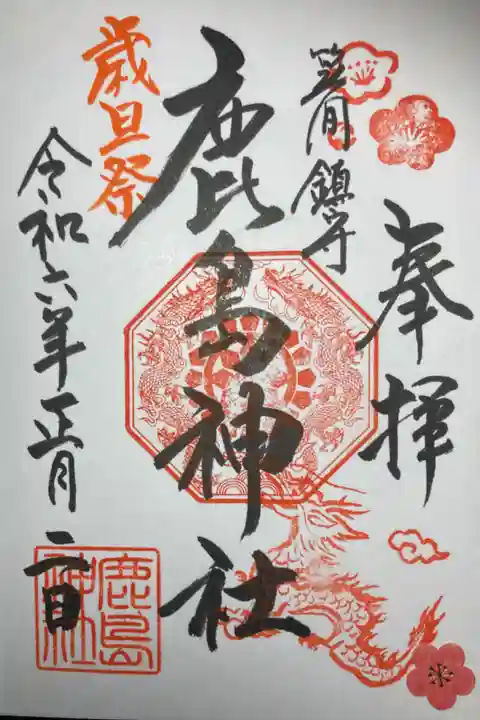 奉拝
笠間鎮守
鹿島神社
歳旦祭
令和六年正月一日
鹿島
神社